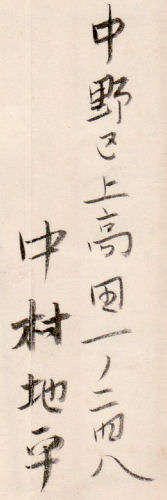 中野区上高田一ノ二四八
中村地平